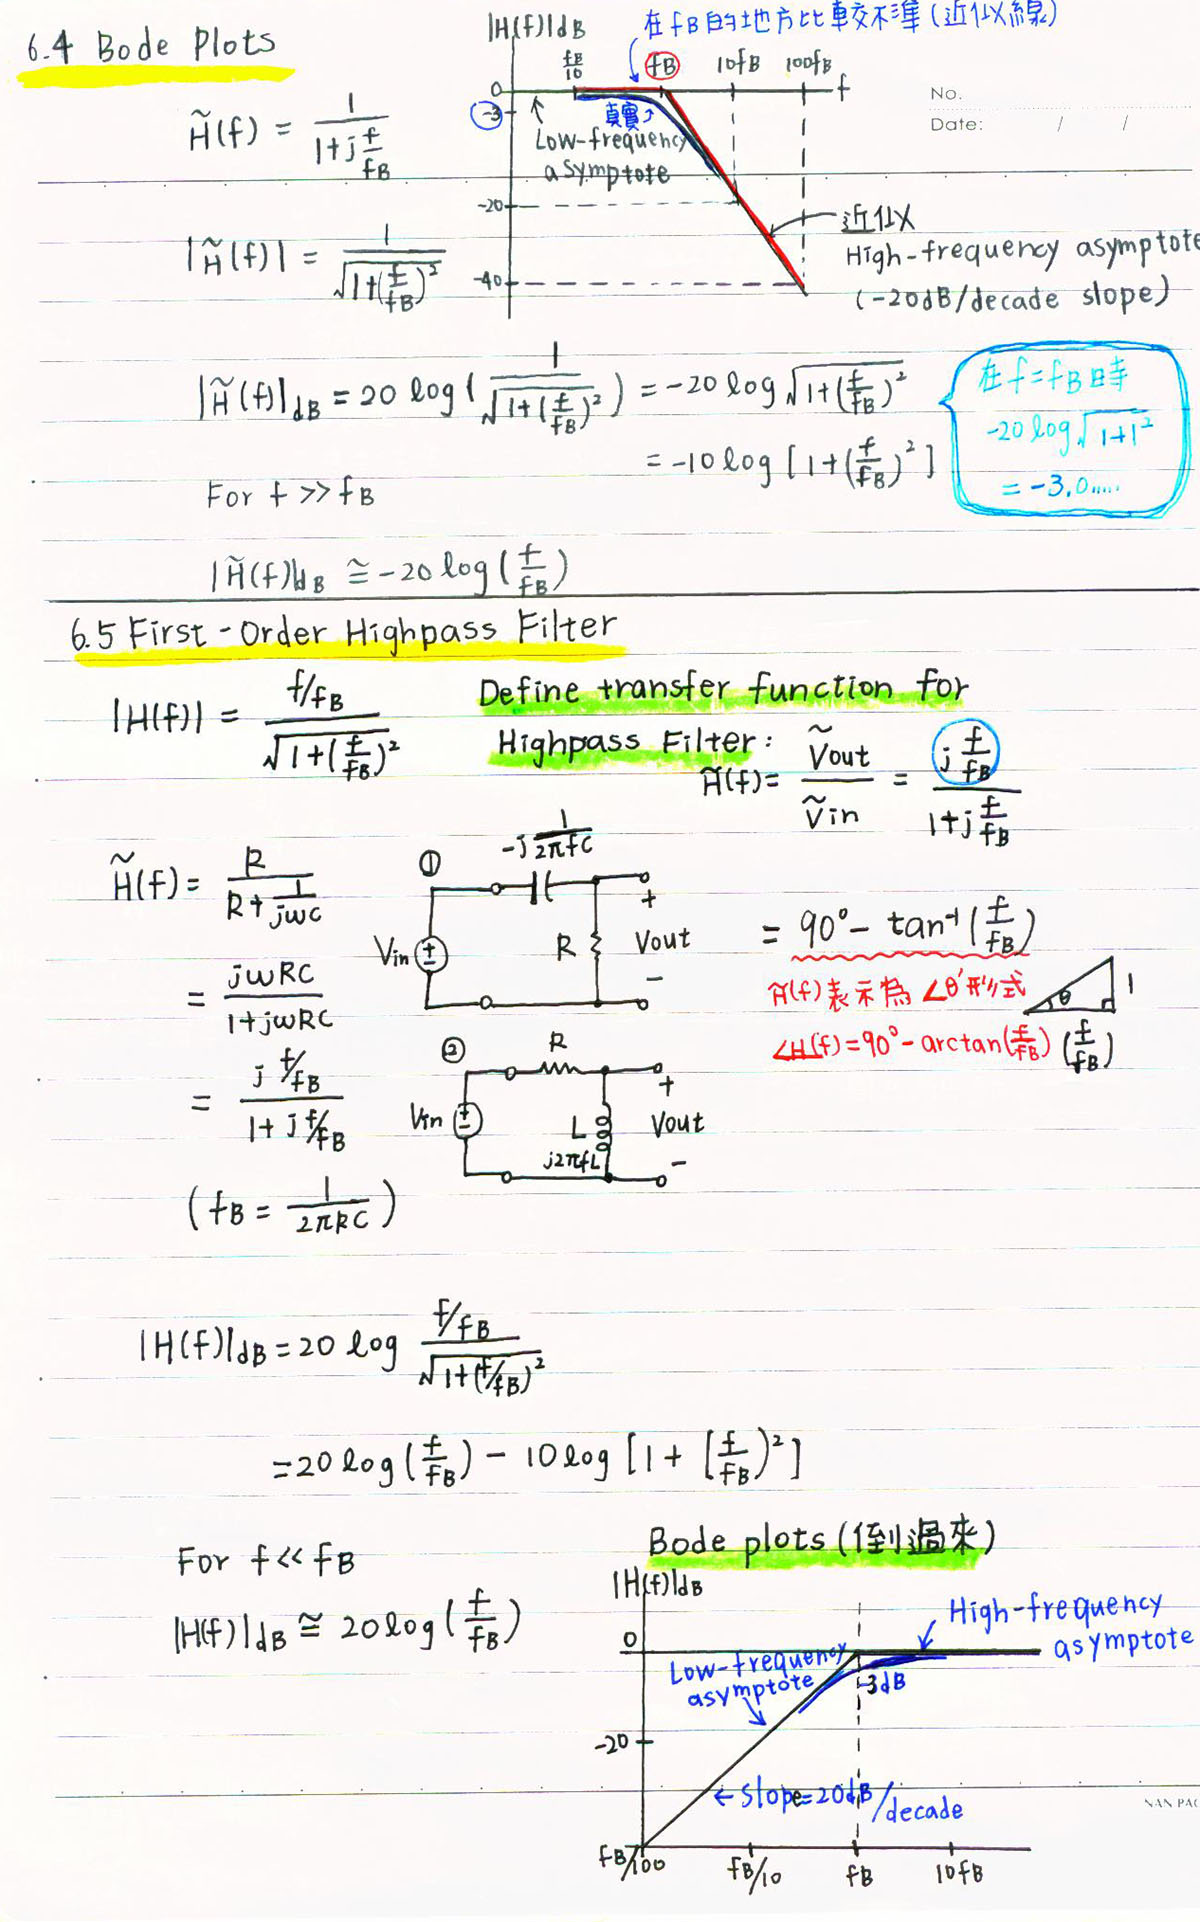 6.4 Bode Plots
|H(f)|dB
在 fB 的地方比較不準(近似線)
fB/10 fB 10fB 100fB f
0
-3
真實
Low-frequency
asymptote
-20
-40
近似
High-frequency asymptote
(-20dB/decade slope)
No.
Date: / /
H̃(f) = 1/(1+j f/fB)
|H̃(f)| = 1/√(1+(f/fB)²)
|H̃(f)|dB = 20 log(1/√(1+(f/fB)²)) = -20 log√(1+(f/fB)²)
= -10 log [1+(f/fB)²]
在 f=fB 時
-20 log√(1+1²)
= -3.0.....
For f >> fB
|H̃(f)|dB ≅ -20 log(f/fB)
6.5 First-Order Highpass Filter
|H(f)| = (f/fB)/√(1+(f/fB)²)
Define transfer function for
Highpass Filter:
H̃(f) = Ṽout/Ṽin = (j f/fB)/(1+j f/fB)
H̃(f) = R/(R+1/jωC)
= jωRC/(1+jωRC)
= (j f/fB)/(1+j f/fB)
(fB = 1/2πRC)
① -j 1/2πfC
Vin + - R + Vout -
② R
Vin + - L j2πfL + Vout -
= 90° - tan⁻¹(f/fB)
H̃(f) 表示為 ∠θ' 形式
∠H(f) = 90° - arctan(f/fB)
θ 1 (f/fB)
|H(f)|dB = 20 log (f/fB)/√(1+(f/fB)²)
= 20 log(f/fB) - 10 log [1+[f/fB)²]
For f << fB
|H(f)|dB ≅ 20 log(f/fB)
Bode plots (倒過來)
|H(f)|dB
0
High-frequency
asymptote
Low-frequency
asymptote
-3dB
-20
← slope=20dB/decade
fB/100 fB/10 fB 10fB
NAN PAO